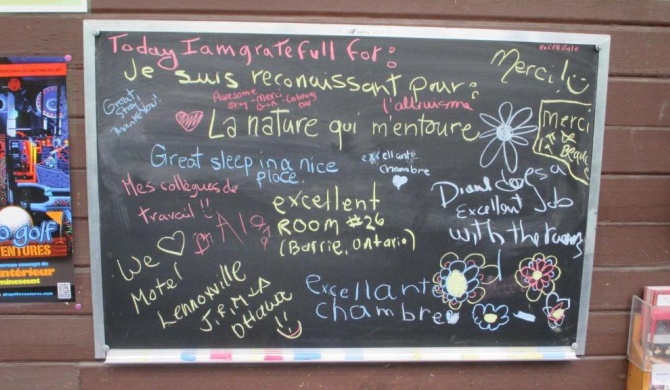 Today I am gratefull for:
Je suis reconaissant pour:
Merci!
Great
stay
Thank you!
Awesome
stay - Merci
l'altruisma
La nature qui m'entoure
Merci
Great sleep in a nice
place.
excellante
chambre
Mes collègues de
travail!!
excellent
ROOM #26
(Barrie, Ontario)
does a
Excellent Job
with the rooms
We
Motel
Lennoxville
J, P, M + A
Ottawa
excellant
chambre
golf
VENTURES
intérieur